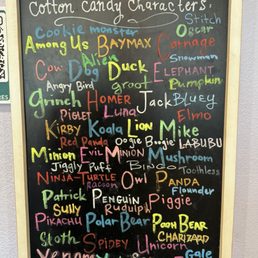 Cotton Candy Characters:
Stitch
Cookie monster Oscar
Among Us BAYMAX Carnage
Alien Snowman
Cow Dog Duck ELEPHANT
Angry Bird groot Pumpkin
Grinch HOMER Jack Bluey
PIGLET Luna Elmo
KIRBY Koala LION Mike
Red Panda Oogie Boogie LABUBU
Minion Evil Minion Mushroom
Jiggly Puff Bingo Toothless
NINJA-TURTLE Owl PANDA
Racoon Flounder
Patrick PENGUIN Piggie
Sully Rudolph
PIKACHU POLAR BEAR POOH BEAR
Sloth SPIDEY CHARIZARD
Unicorn
Venom Gale